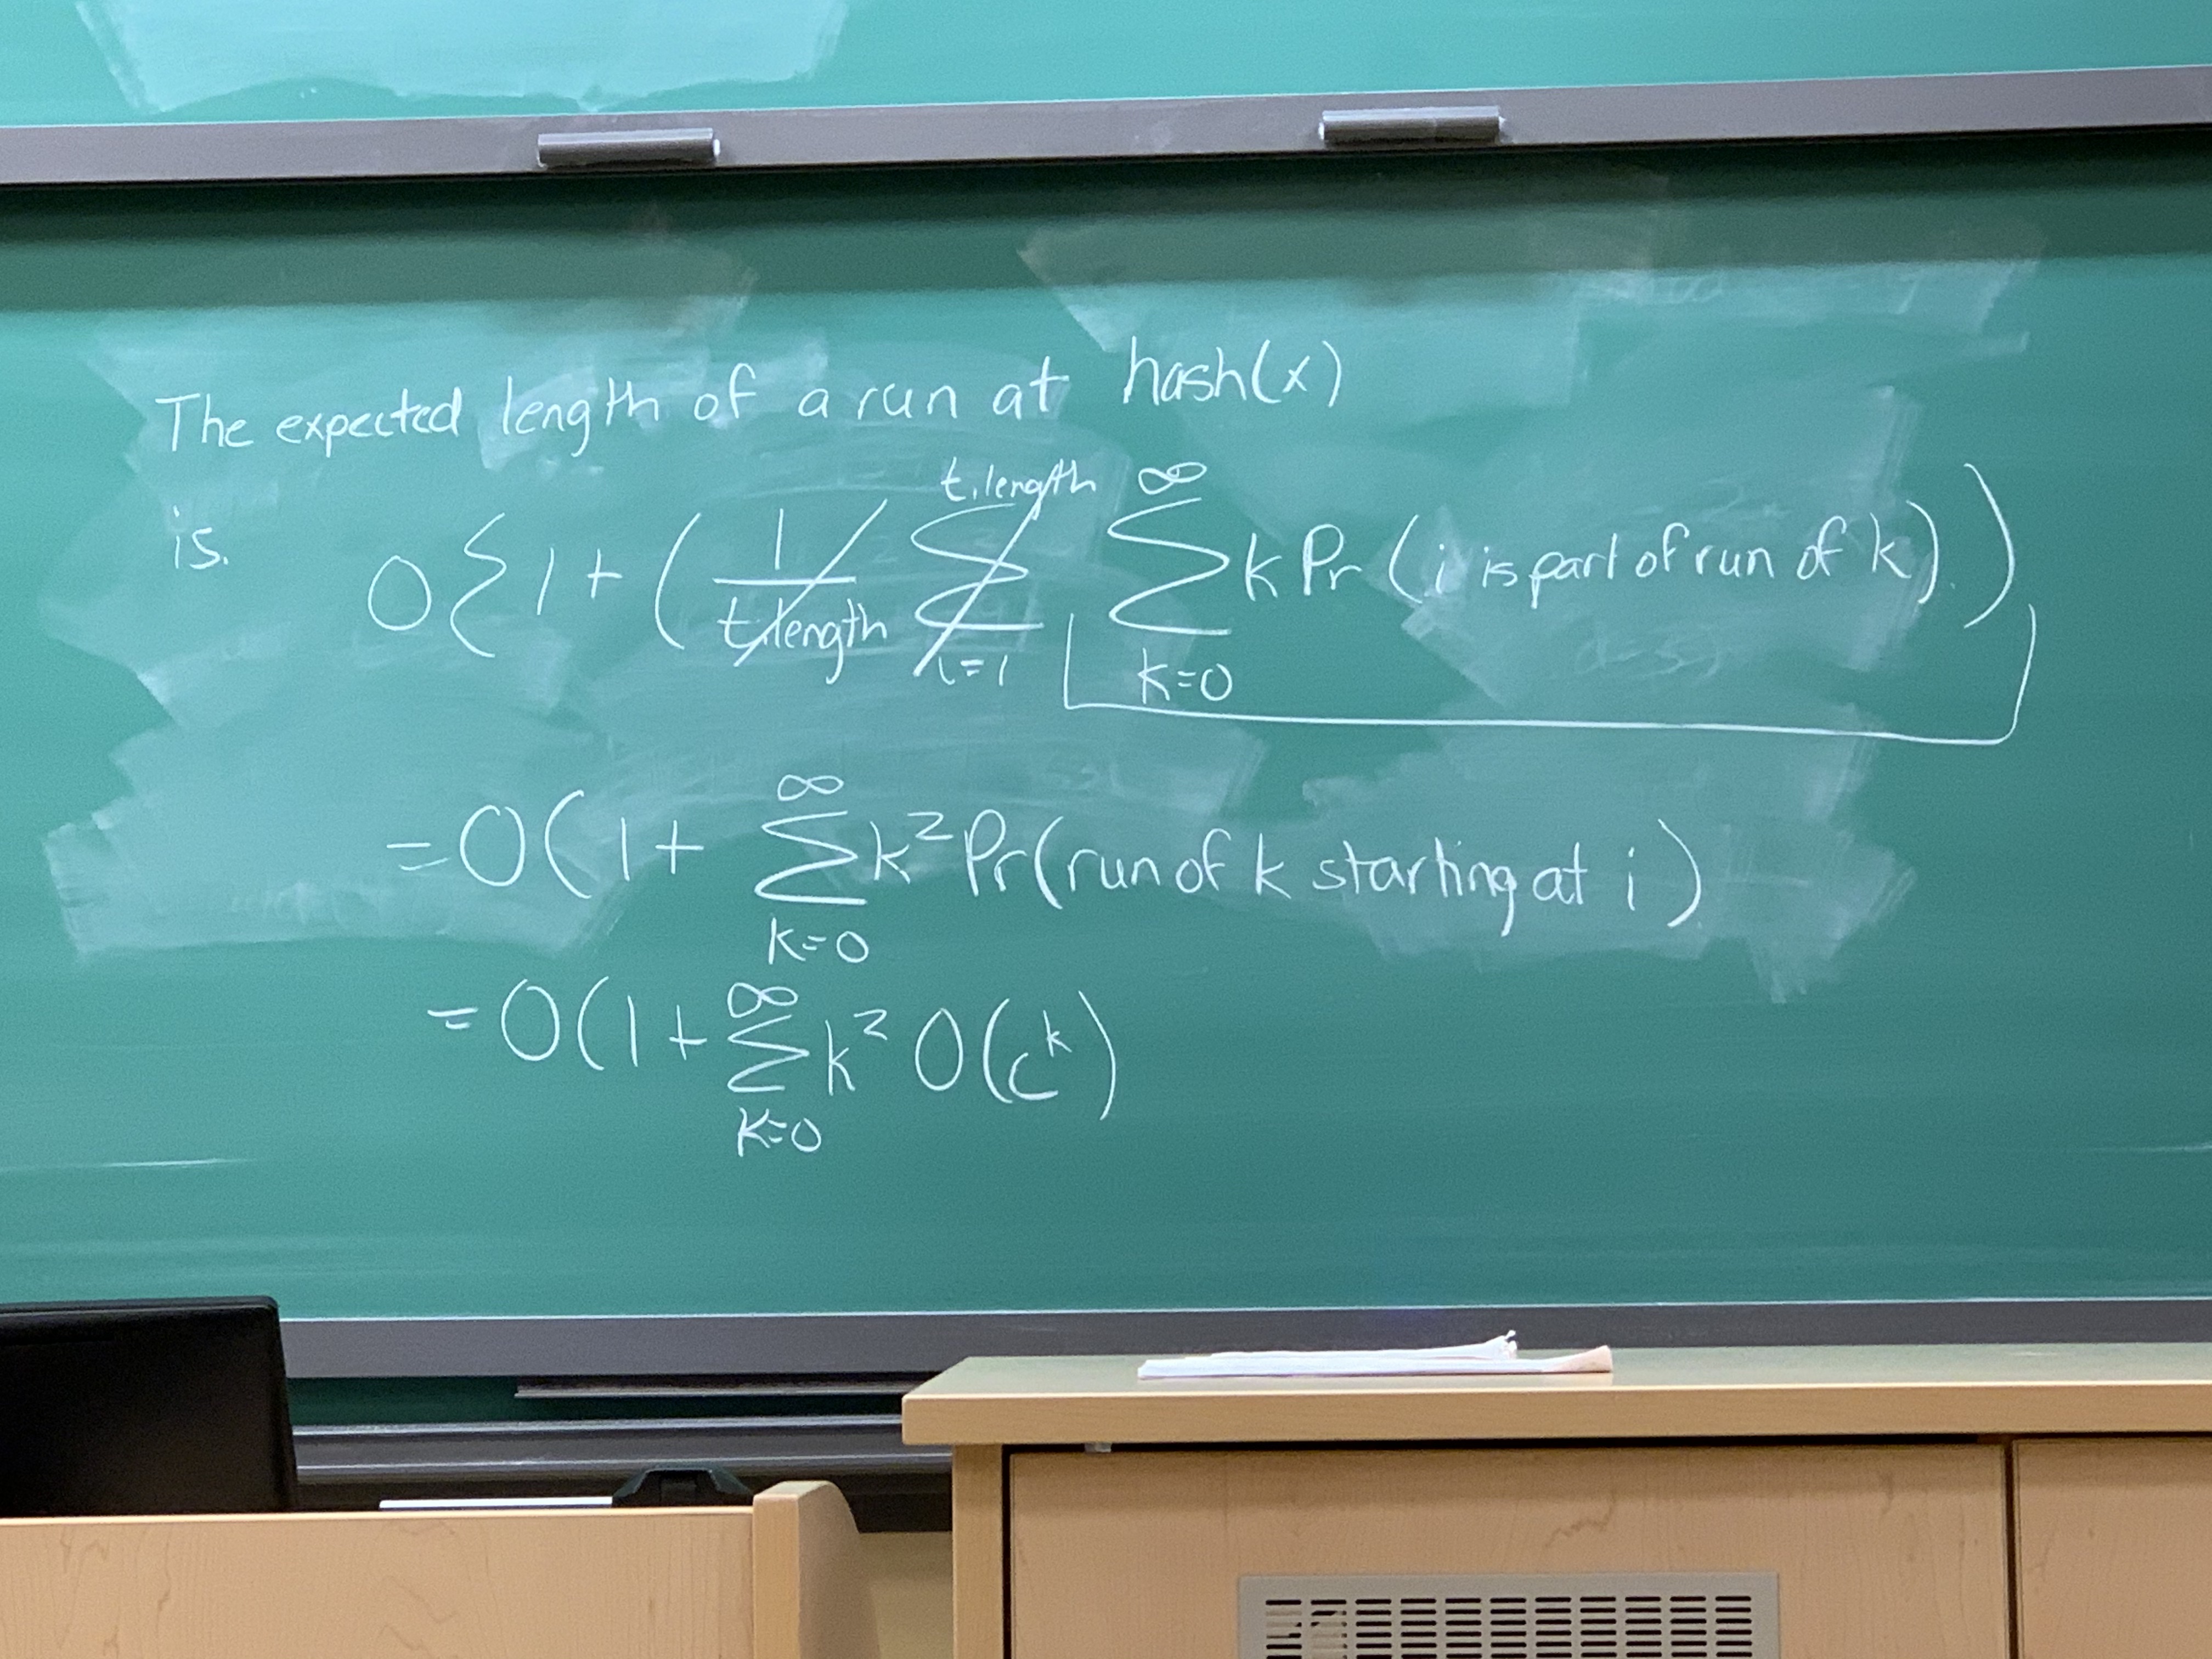 The expected length of a run at hash(x)
is. O{1 + (1/t.length ∑_{i=1}^{t.length} ∑_{k=0}^{∞} k Pr(i is part of run of k).)
= O(1 + ∑_{k=0}^{∞} k² Pr(run of k starting at i)
= O(1 + ∑_{k=0}^{∞} k² O(c^k)